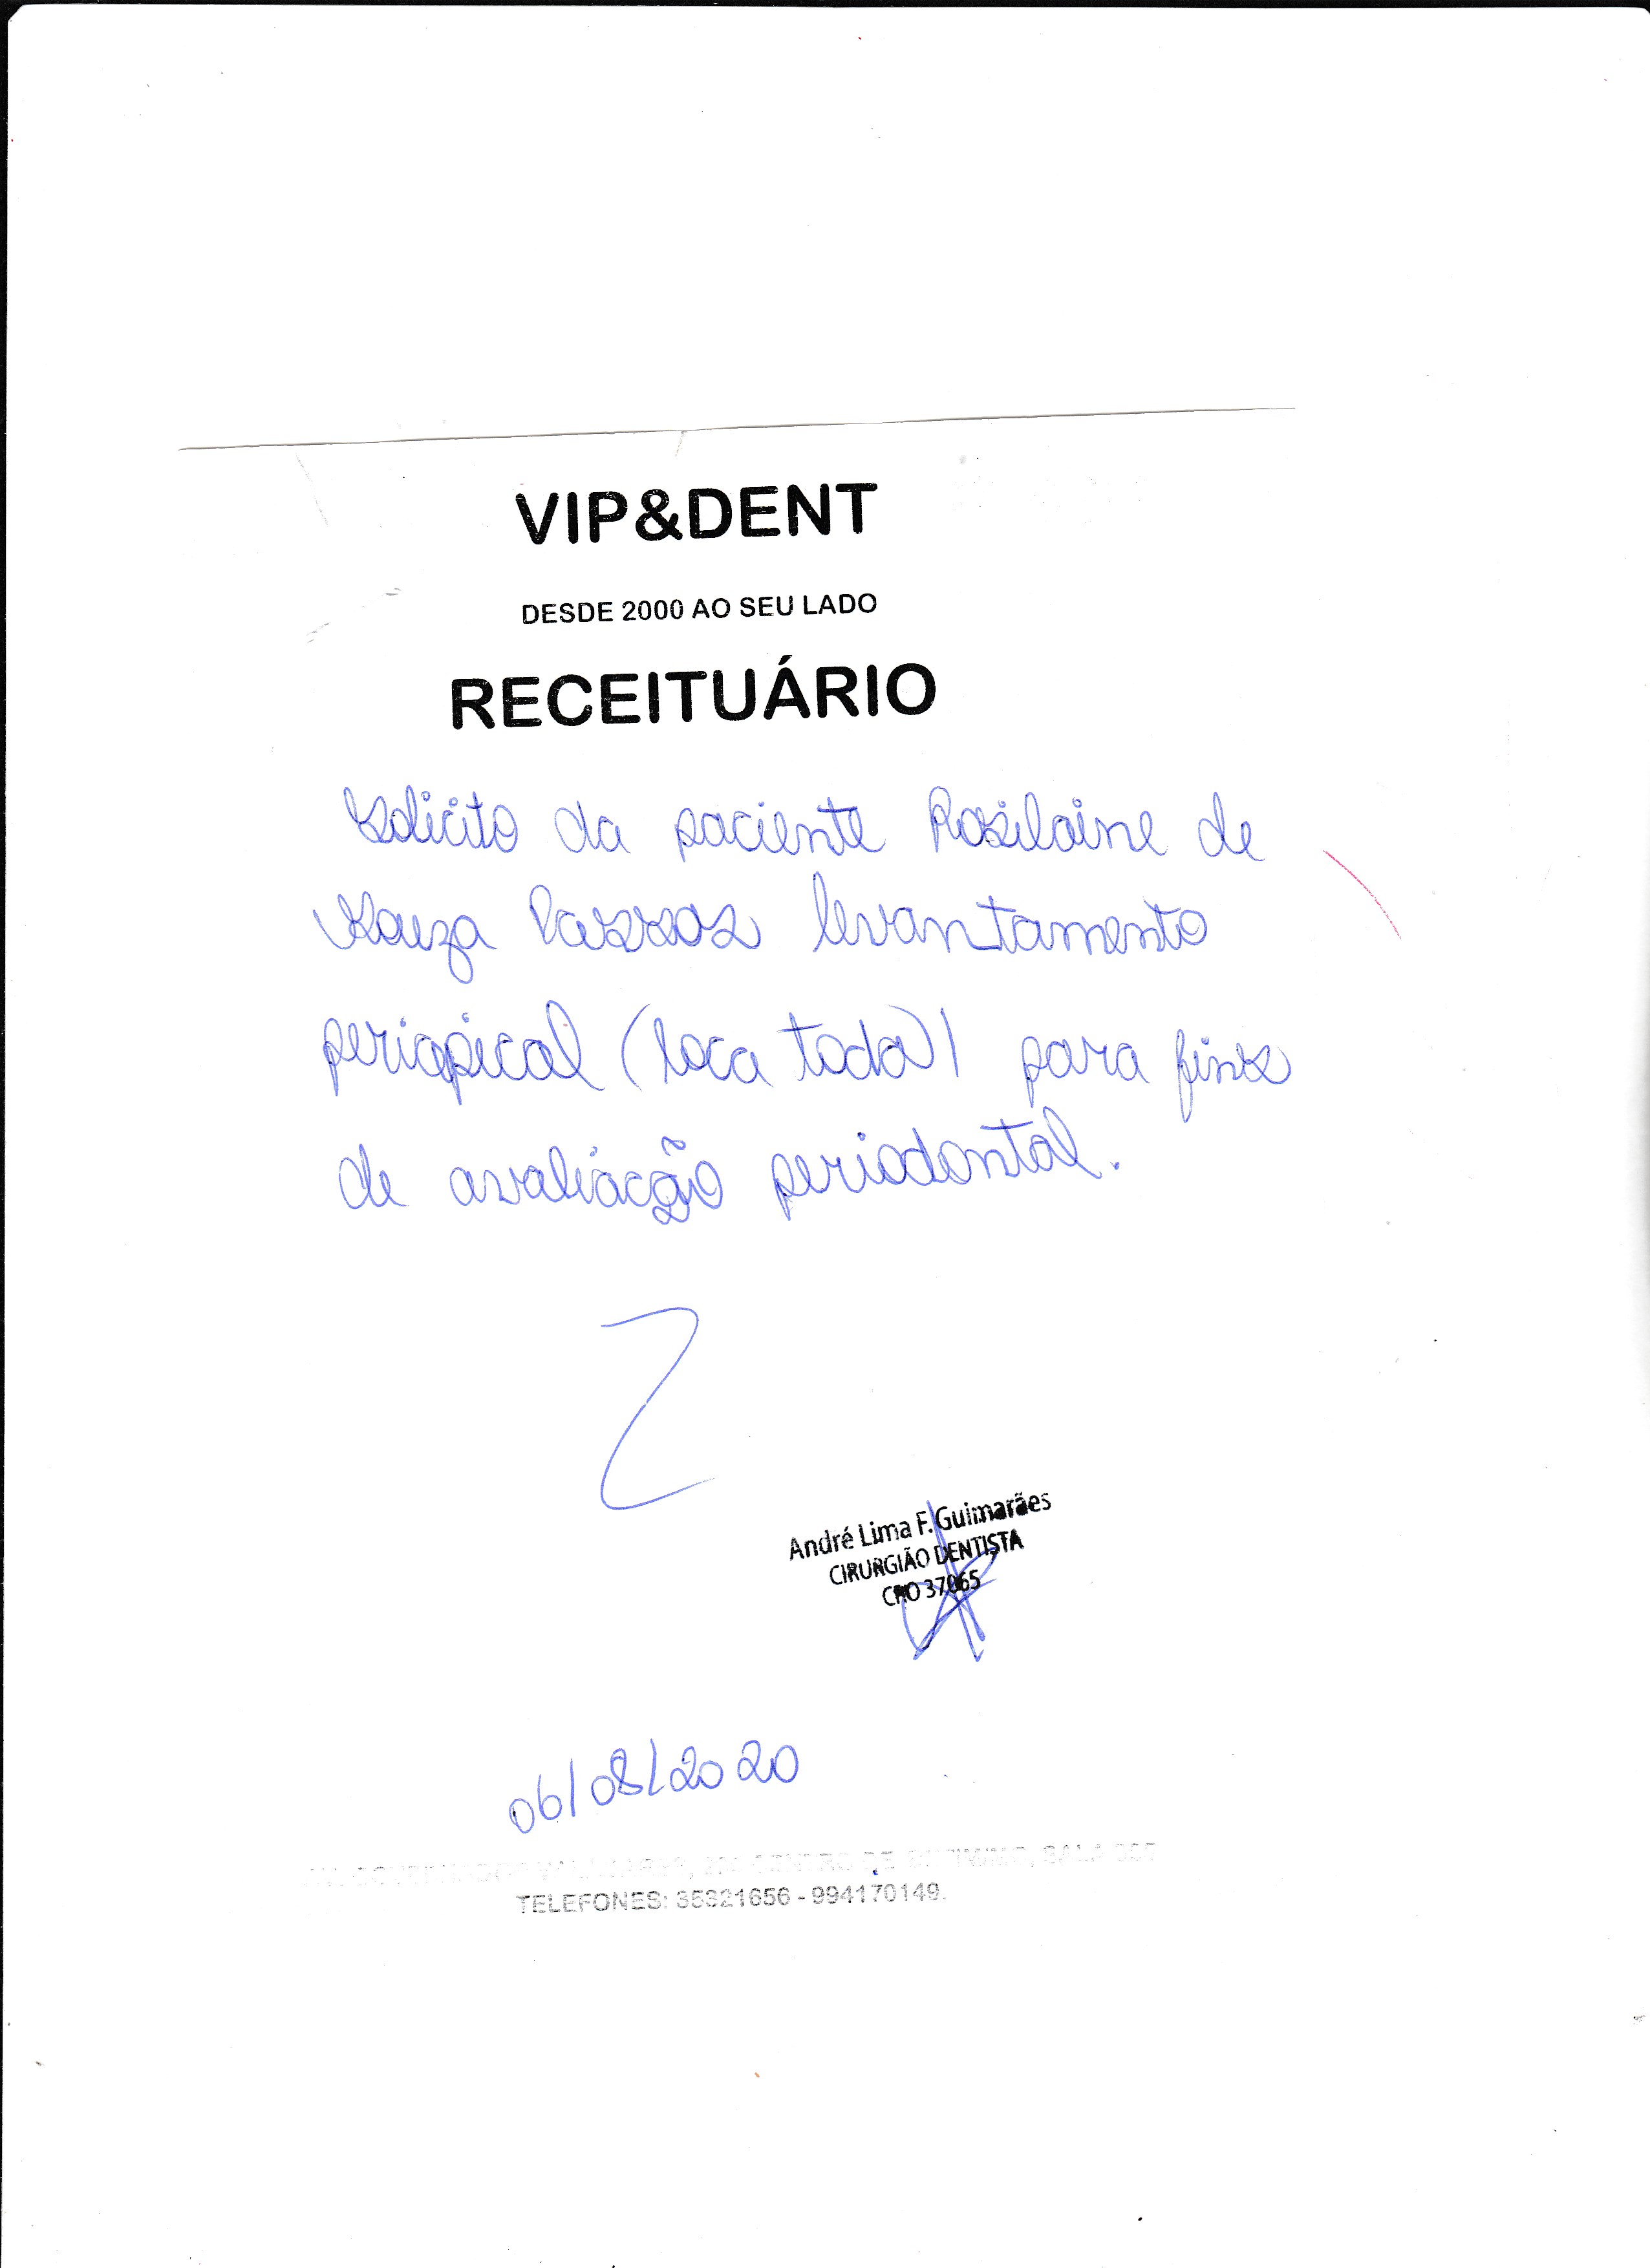 VIP&DENT
DESDE 2000 AO SEU LADO
RECEITUÁRIO
Solicito da paciente Rosilaine de
Souza Passos levantamento
periapical (boca toda) para fins
de avaliação periodontal.
André Lima F. Guimarães
CIRURGIÃO DENTISTA
CRO 37065
06/08/2020
SALA
TELEFONES: 35321656 - 994170149.